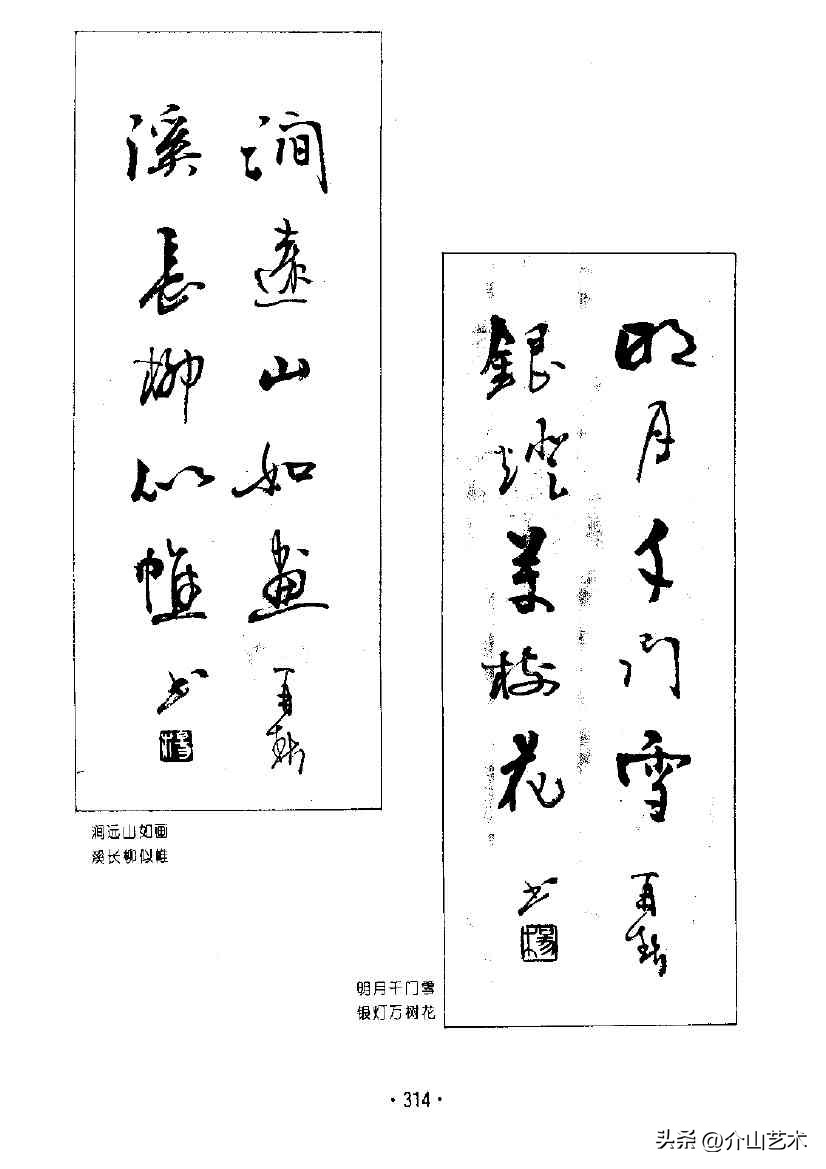 澗遠山如畫 再春
溪長柳似帷 书
楊
涧远山如画
溪长柳似帷
明月千门雪 再春
銀燈萬樹花 书
楊
明月千门雪
银灯万树花
·314·
头条 @介山艺术